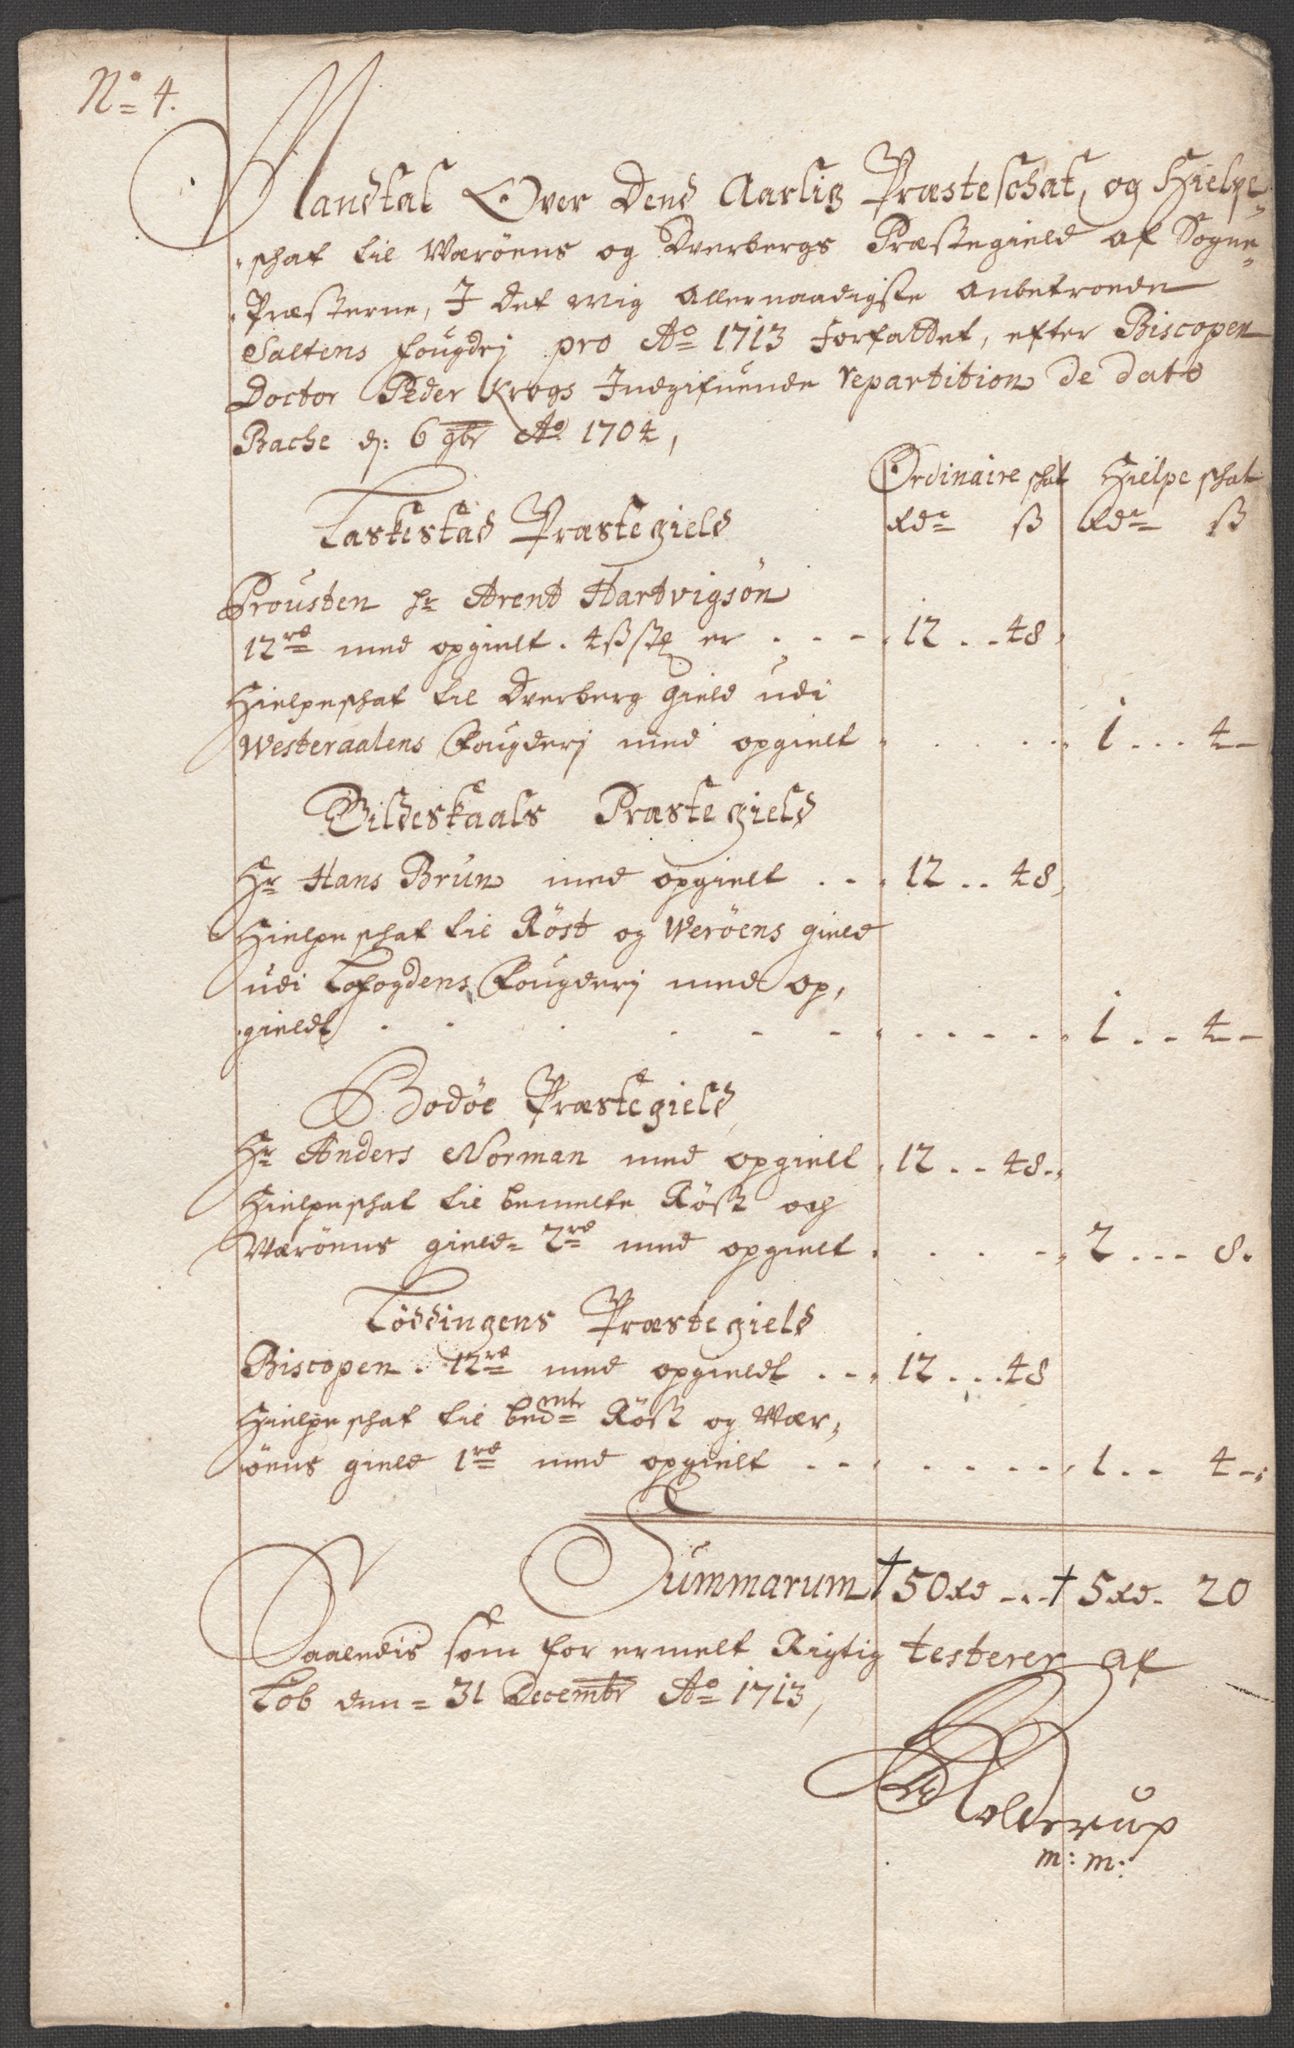 No 4.
Mandtal Over Dend Aarlig Præsteschat, og Hielpe-
schat til Værøens og Dverbergs Præstegield af Sogne-
Præsterne, I det mig Allernaadigste Anbetroede
Saltens fougdrj pro Ao 1713 forfaldet, efter Biscopen
Doctor Peder Krogs Indgifuende repartition de dato
Bache d: 6 9br Ao 1704,
Ordinaire schat Hielpe schat
Rdr ß Rdr ß
Laskestad Præstegield
Prousten Hr Arent Hartvigsøn
12rd med opgielt . 4ß er . . . 12 . . 48,
Hielpeschat til Dverberg Gield udi
Westeraalens Fougderj med opgielt . . . . . . 1 . . . 4-
Gildeskaals Præstegield
Hr Hans Brun med opgielt . . . 12 . . 48,
Hielpe schat til Røst og Werøens gield
udi Lofogdens Fougderj med op,
gieldt . . . . . . . . . . . 1 . . . 4-
Bodøe Præstegield
Hr Anders Norman med opgielt . 12 . . 48.,
Hielpeschat til bemelte Røst och
Værøens gield- 2rd med opgielt . . . . . 2 . . . 8.
Løddingens Præstegield
Biscopen . 12rd med opgieldt . . . 12 . . . 48
Hielpe schat til bedmte Røst og Vær,
øens gield 1rd med opgielt . . . . . . . . 1 . . 4-,
Summarum 50Rd . . . 5Rd. 20
Saaledis som for ermelt Rigtig testerer af
Løb den = 31 Decembr Ao 1713,
Rolderup
m: m: